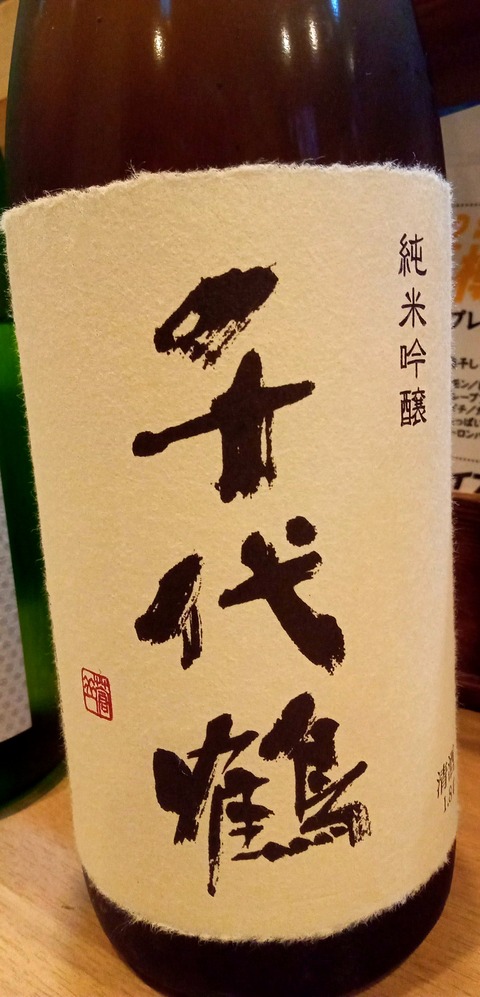 純米吟醸
千代鶴
清酒